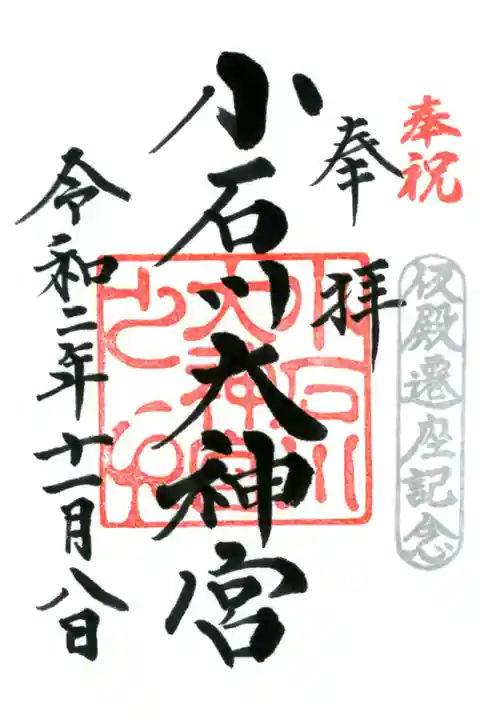 奉祝
仮殿遷座記念
奉拝
小石川大神宮
小石川大神宮之印
令和二年十一月八日